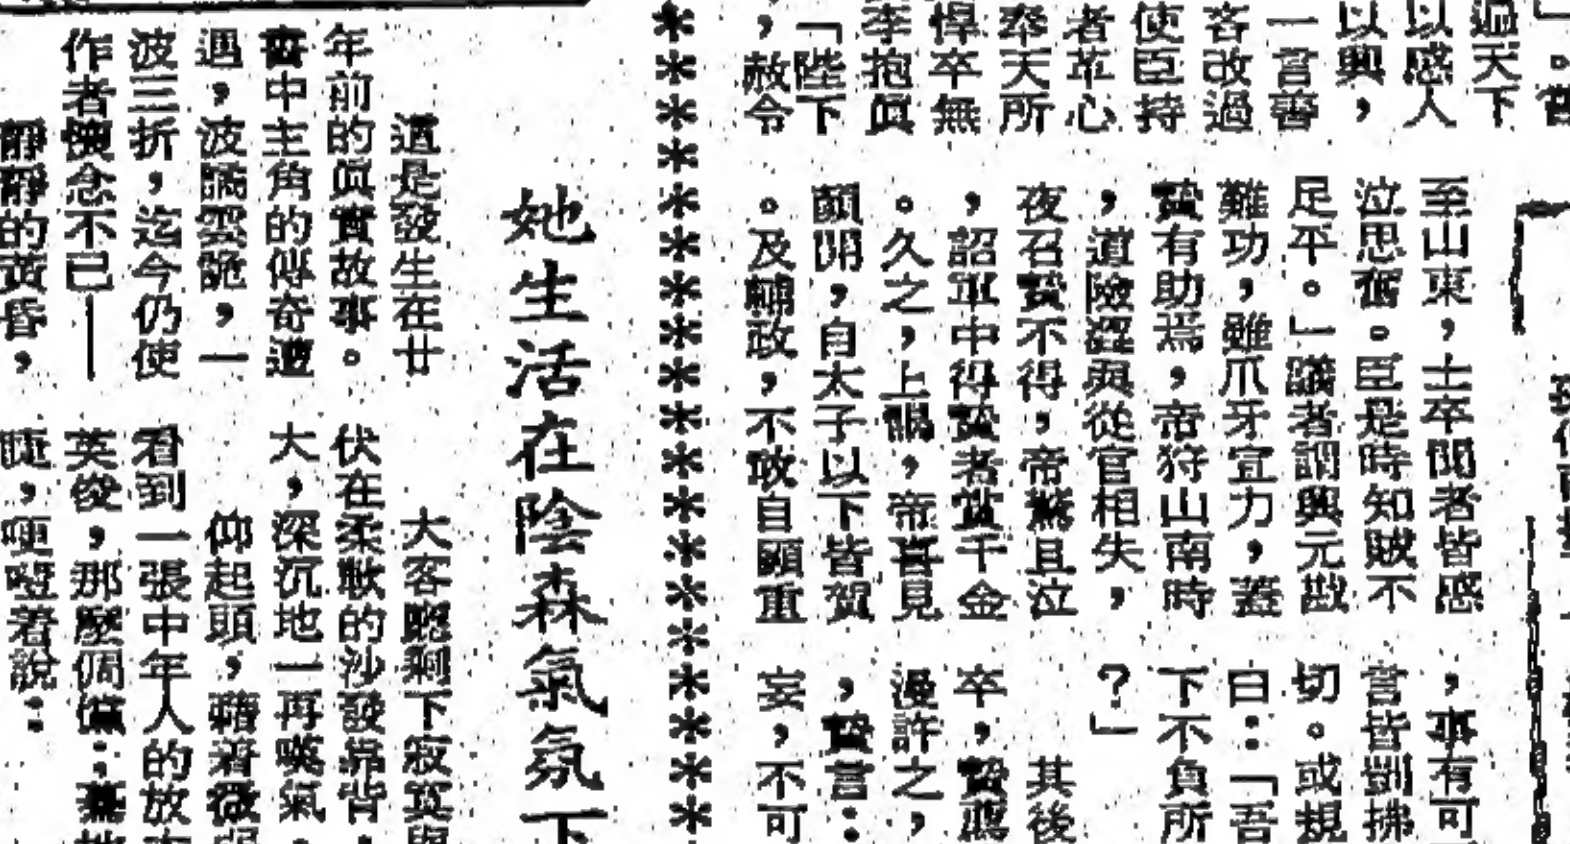 」。昔
過天下
以感人
以興，
一言善
容改過
使臣持
者革心
奉天所
悍卒無
李抱眞
「陛下
，赦令
至山東，士卒聞者皆感
泣思奮。臣是時知賊不
足平。」議者謂興元戡
難功，雖爪牙宣力，蓋
贄有助焉，帝狩山南時
，道險澀與從官相失，
夜召贄不得，帝驚且泣
，詔軍中得贄者賞千金
。久之，上謁，帝喜見
顏間，自太子以下皆賀
。及輔政，不敢自顧重
，事有可
言皆剴拂
切。或規
白：「吾
下不負所
？」
其後
卒，贄應
漫許之，
，贄言：
妄，不可
她生活在陰森氣氛下
這是發生在廿
年前的眞實故事。
書中主角的傳奇遭
遇，波譎雲詭，一
波三折，迄今仍使
作者懷念不已——
靜靜的黃昏，
大客廳剩下寂寞與
伏在柔軟的沙發靠背，
大，深沉地一再嘆氣，
仰起頭，藉着微弱
看到一張中年人的放大
英俊，那麼倜儻：驀地
睫，哽咽着說：